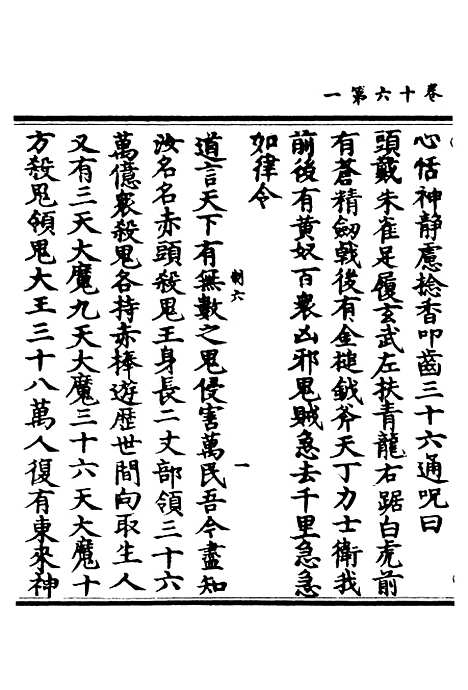 卷十六第一
心恬神静慮捻香叩齒三十六通呪曰
頭戴朱雀足履玄武左扶青龍右踞白虎前
有蒼精劒戟後有金槌鉞斧天丁力士衛我
前後有黄奴百衆凶邪鬼賊急去千里急急
如律令
制六 一
道言天下有無數之鬼侵害萬民吾今盡知
汝名名赤頭殺鬼王身長二丈部領三十六
萬億衆殺鬼各持赤棒遊歴世間向取生人
又有三天大魔九天大魔三十六天大魔十
方殺鬼領鬼大王三十八萬人復有東來神